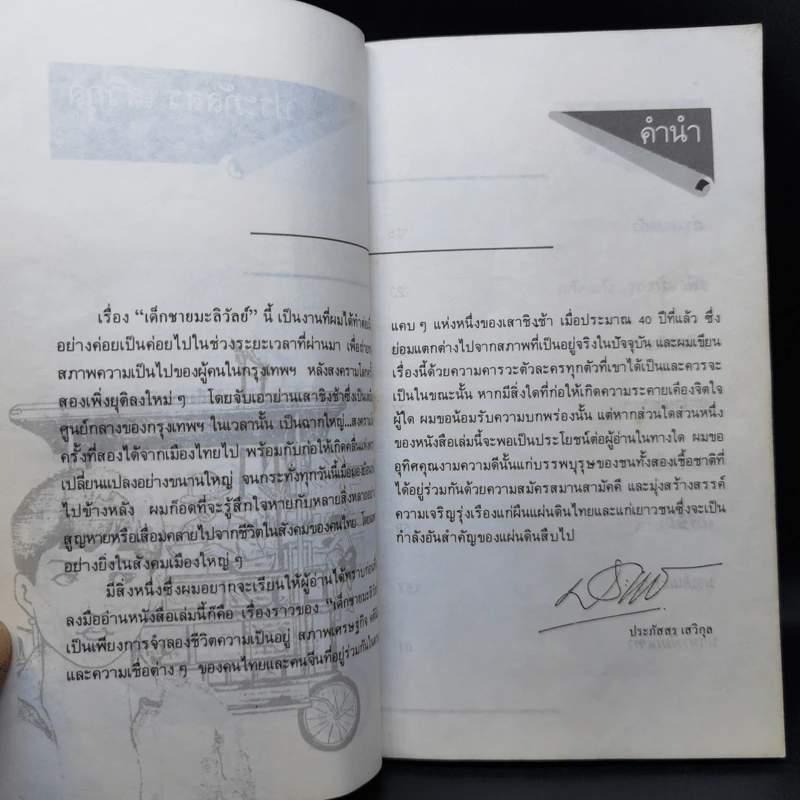 คำนำ
เรื่อง “เด็กชายมะลิวัลย์” นี้ เป็นงานที่ผมได้ทำ
อย่างค่อยเป็นค่อยไปในช่วงระยะเวลาที่ผ่านมา
สภาพความเป็นไปของผู้คนในกรุงเทพฯ หลังสงครามโลก
สองเพิ่งยุติลงใหม่ ๆ โดยจับเอาย่านเสาชิงช้าซึ่งเป็น
ศูนย์กลางของกรุงเทพฯ ในเวลานั้น เป็นฉากใหญ่...สงคราม
ครั้งที่สองได้จากเมืองไทยไป พร้อมกับก่อให้เกิดคลื่น
เปลี่ยนแปลงอย่างขนานใหญ่ จนกระทั่งทุกวันนี้เมื่อมอง
ไปข้างหลัง ผมก็อดที่จะรู้สึกใจหายกับหลายสิ่งหลาย
สูญหายหรือเสื่อมคลายไปจากชีวิตในสังคมของคนไทย
อย่างยิ่งในสังคมเมืองใหญ่ ๆ
มีสิ่งหนึ่งซึ่งผมอยากจะเรียนให้ผู้อ่านได้ทราบก่อน
ลงมืออ่านหนังสือเล่มนี้ก็คือ เรื่องราวของ “เด็กชายมะลิวัลย์
เป็นเพียงการจำลองชีวิตความเป็นอยู่ สภาพเศรษฐกิจ
และความเชื่อต่าง ๆ ของคนไทยและคนจีนที่อยู่ร่วมกันใน
แคบ ๆ แห่งหนึ่งของเสาชิงช้า เมื่อประมาณ 40 ปีที่แล้ว ซึ่ง
ย่อมแตกต่างไปจากสภาพที่เป็นอยู่จริงในปัจจุบัน และผมเขียน
เรื่องนี้ด้วยความคารวะตัวละครทุกตัวที่เขาได้เป็นและควรจะ
เป็นในขณะนั้น หากมีสิ่งใดที่ก่อให้เกิดความระคายเคืองจิตใจ
ผู้ใด ผมขอน้อมรับความบกพร่องนั้น แต่หากส่วนใดส่วนหนึ่ง
ของหนังสือเล่มนี้จะพอเป็นประโยชน์ต่อผู้อ่านในทางใด ผมขอ
อุทิศคุณงามความดีนั้นแก่บรรพบุรุษของชนทั้งสองเชื้อชาติที่
ได้อยู่ร่วมกันด้วยความสมัครสมานสามัคคี และมุ่งสร้างสรรค์
ความเจริญรุ่งเรืองแก่ผืนแผ่นดินไทยและแก่เยาวชนซึ่งจะเป็น
กำลังอันสำคัญของแผ่นดินสืบไป
ประภัสสร เสวิกุล